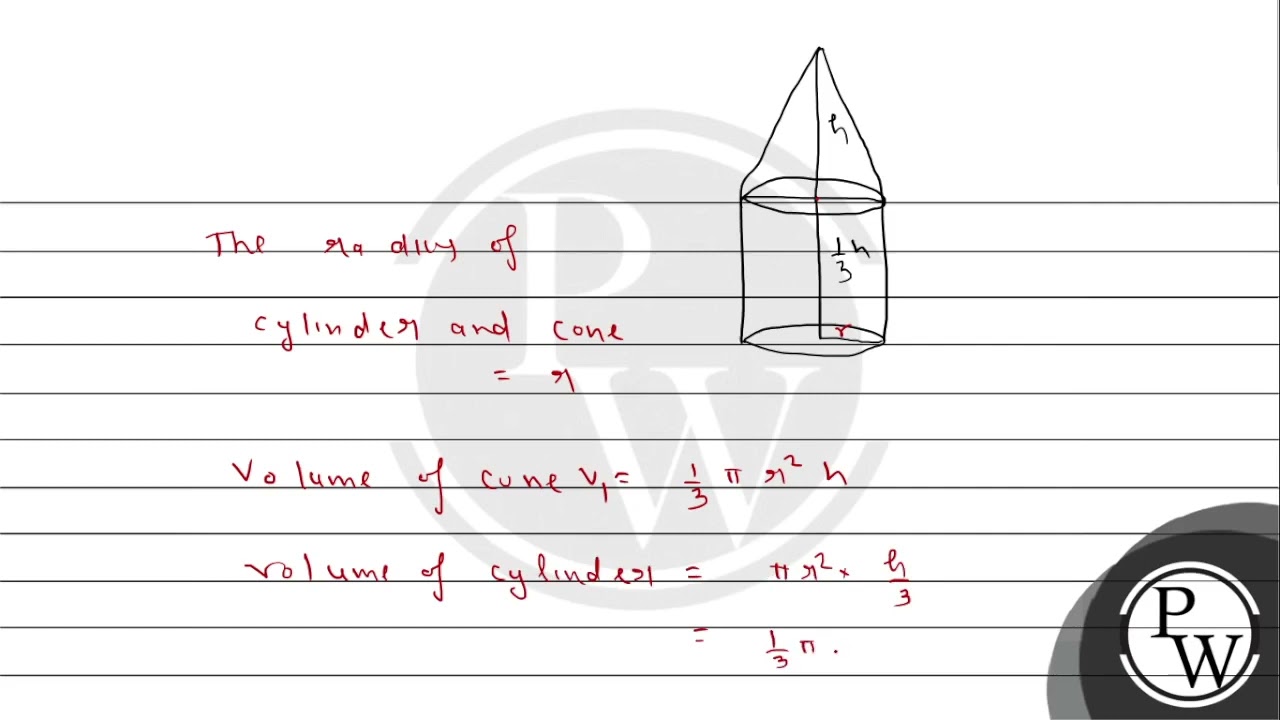 h
1/3 h
r
The radius of
cylinder and cone
= r
Volume of cone V₁ = 1/3 π r² h
volume of cylinder = π r² × h/3
= 1/3 π .
P
W
P
W